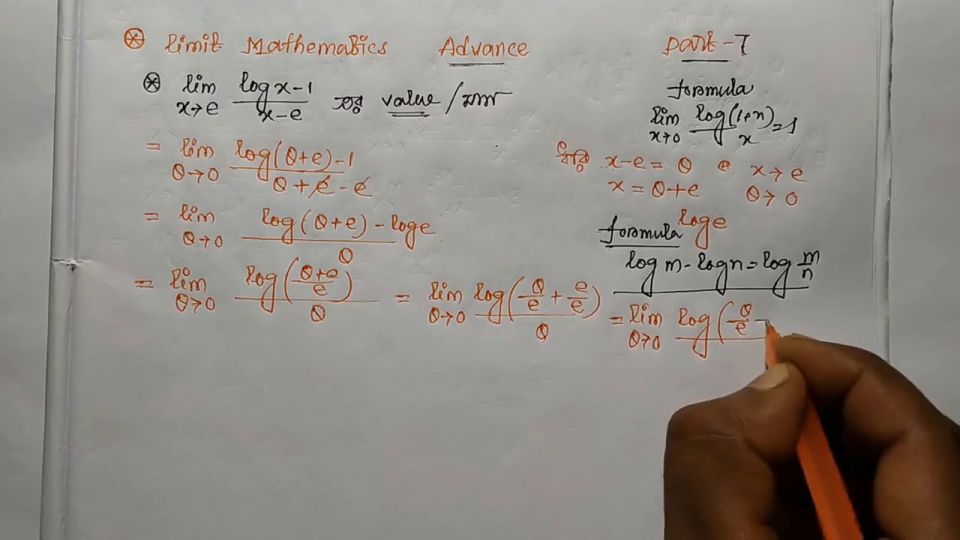 ⊛ Limit Mathematics Advance Part-7
⊛ lim x→e (log x - 1)/(x-e) এর value / মান
formula
lim x→0 log(1+x)/x = 1
= lim θ→0 (log(θ+e)-1)/(θ+e-e)
ধরি x-e = θ x→e
x = θ+e θ→0
= lim θ→0 (log(θ+e) - loge)/θ
formula loge
log m - log n = log m/n
= lim θ→0 log((θ+e)/e)/θ = lim θ→0 log(θ/e + e/e)/θ = lim θ→0 log(θ/e